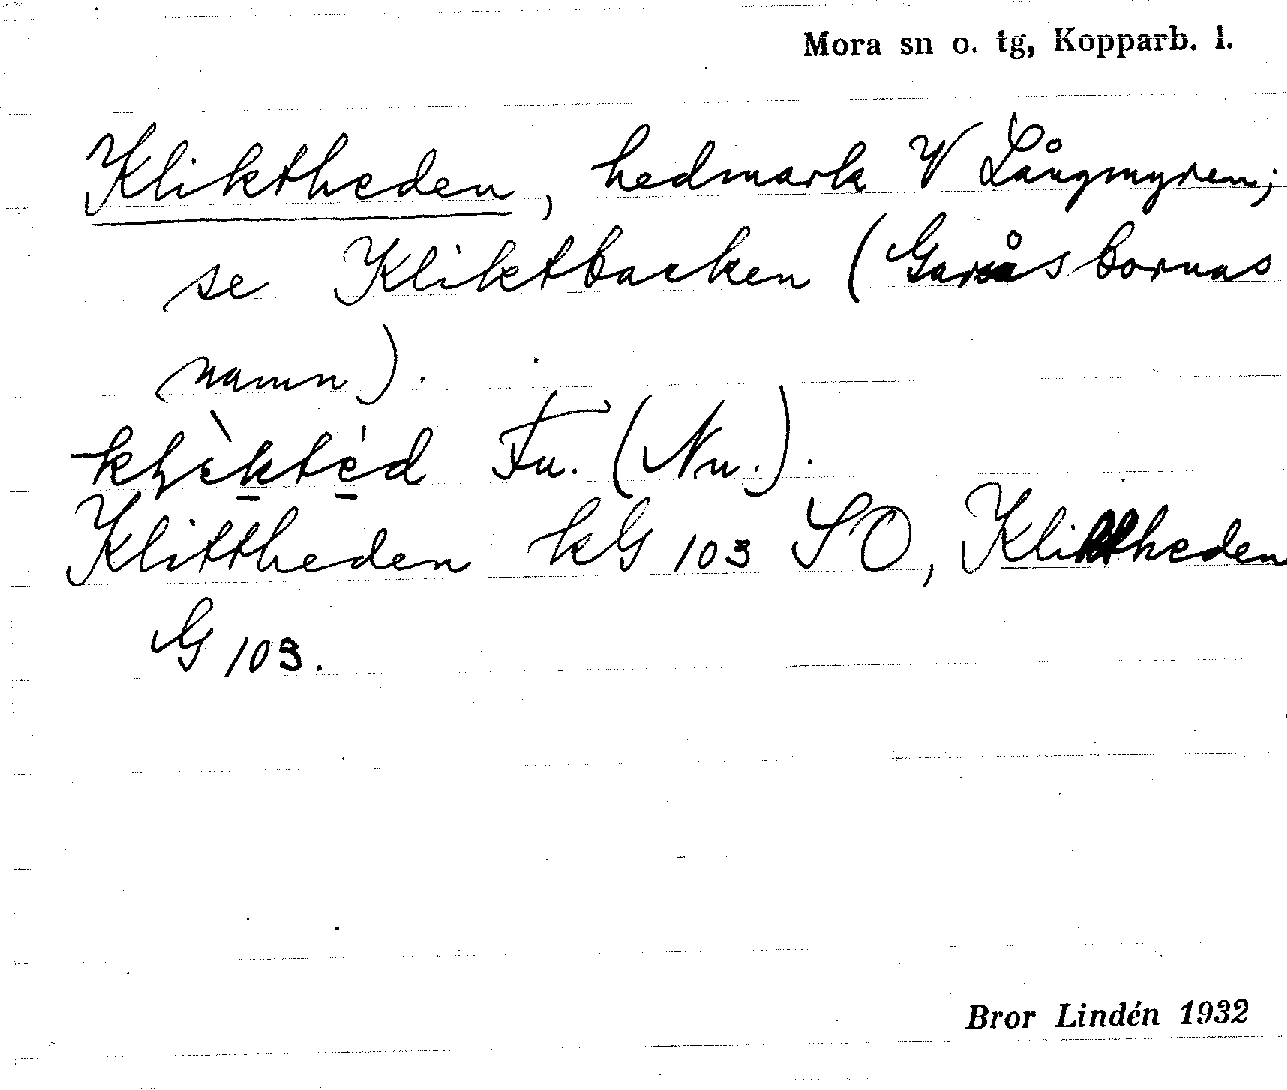 Mora sn o. tg, Kopparb. l.
Kliktheden, hedmark V Långmyren;
se Kliktbacken (Garsåsbornas
namn).
Fu. (Nu.).
Klittheden kG 103 SO, Klittheden
G 103.
Bror Lindén 1932